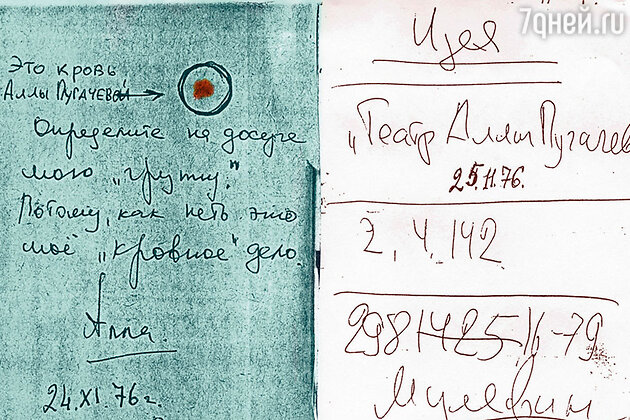 Это кровь
Аллы Пугачевой →
Определите на досуге
мою „группу".
Потому, как петь это
моё „кровное" дело.
Алла.
24.XI.76г.
7дней.ru
Идея
„Театр Аллы Пугачев
25.11.76.
2, 4, 142
298 1425 16-79